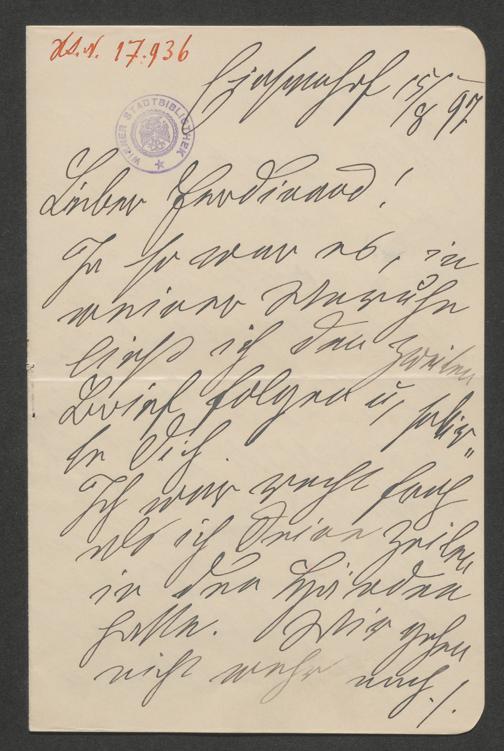 H.I.N. 17.936
WIENER STADTBIBLIOTHEK
15/8 97
Lieber Ferdinand!
Ja so war es, in
meiner Unruhe
ließ ich den zweiten
Brief folgen u,
te Dich.
Ich war recht froh
als ich Deine Zeilen
in den Händen
hatte. Wir gehen
nicht mehr nach